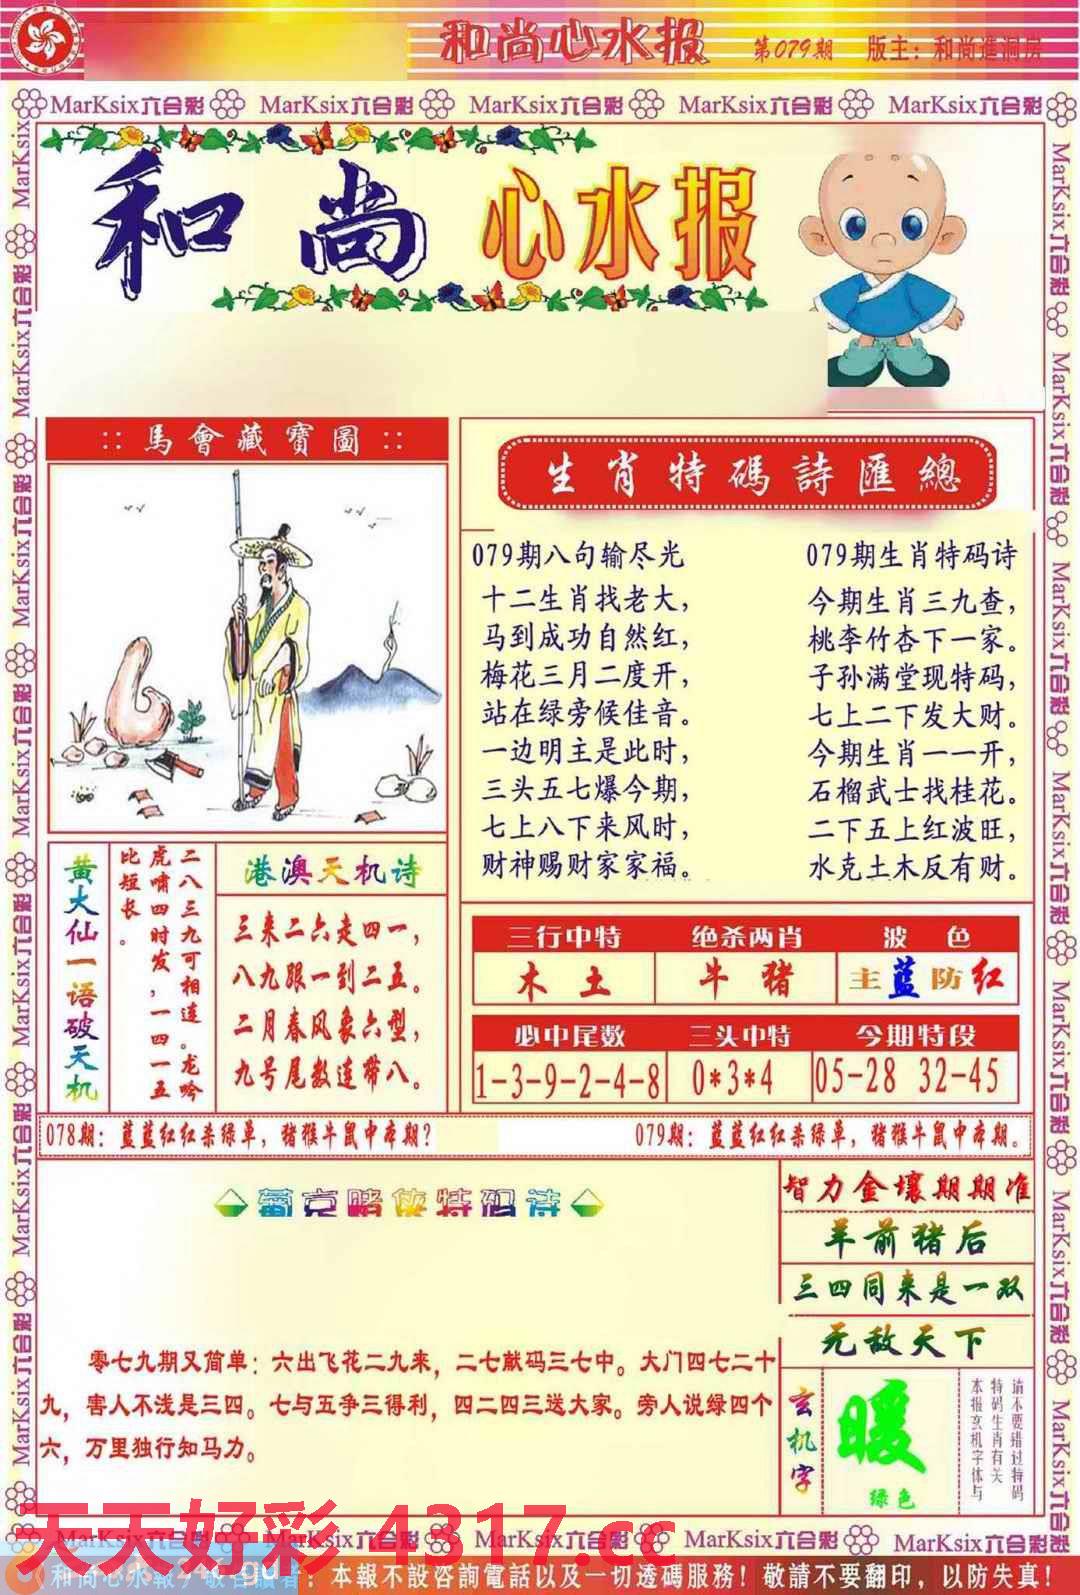 和尚心水报 第079期 版主：和尚進洞房
MarKsix六合彩 MarKsix六合彩 MarKsix六合彩 MarKsix六合彩 MarKsix六合彩
和尚心水报
:: 馬會藏寶圖 ::
生肖特碼詩匯總
079期八句输尽光
十二生肖找老大，
马到成功自然红，
梅花三月二度开，
站在绿旁候佳音。
一边明主是此时，
三头五七爆今期，
七上八下来风时，
财神赐财家家福。
079期生肖特码诗
今期生肖三九查，
桃李竹杏下一家。
子孙满堂现特码，
七上二下发大财。
今期生肖一一开，
石榴武士找桂花。
二下五上红波旺，
水克土木反有财。
黄大仙一语破天机
二八三九可相连。龙吟
虎啸四时发，一四一五
比短长。
港澳天机诗
三来二六走四一，
八九跟一到二五。
二月春风象六型，
九号尾数连带八。
三行中特 绝杀两肖 波色
木土 牛猪 主蓝防红
必中尾数 三头中特 今期特段
1-3-9-2-4-8 0*3*4 05-28 32-45
078期：蓝蓝红红杀绿单，猪猴牛鼠中本期？ 079期：蓝蓝红红杀绿单，猪猴牛鼠中本期。
葡京赌侠特码诗
零七九期又简单：六出飞花二九来，二七献码三七中。大门四七二十
九，害人不浅是三四。七与五争三得利，四二四三送大家。旁人说绿四个
六，万里独行知马力。
智力金壤期期准
羊前猪后
三四同来是一双
无敌天下
玄机字
暖
绿色
请不要错过特码
特码生肖有关
本报玄机字体与
天天好彩 4317.cc
MarKsix六合彩 MarKsix六合彩 MarKsix六合彩 MarKsix六合彩 MarKsix六合彩
和尚心水報，敬告讀者：本報不設咨詢電話以及一切透碼服務！敬請不要翻印，以防失真！